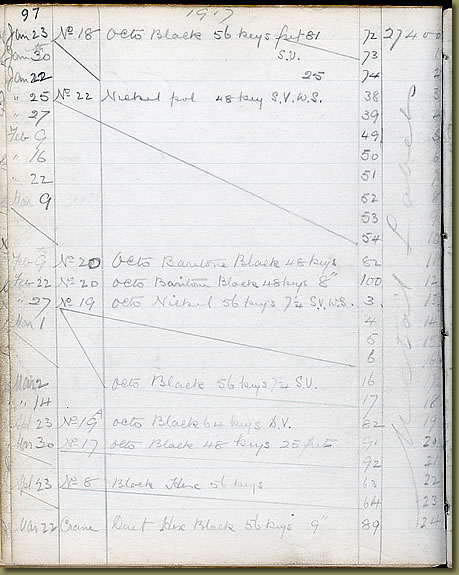 97 1917
Jan 23 No 18 Octo Black 56 keys fret 81 72 27400
Jan 30 S.V. 73 1
Jan 22 25 74 2
" 25 No 22 Nickel pol 48 key S.V.W.S. 38 3
" 27 39 4
Feb 9 49 5
" 16 50 6
" 22 51 7
Mar 9 52 8
53 9
54 10
Feb 9 No 20 Octo Baritone Black 48 keys 82 11
Feb 22 No 20 Octo Baritone Black 48 keys 8" 100 12
" 27 No 19 octo Nickel 56 keys 7¼ S.V.W.S. 3 13
Mar 1 4 14
5 15
6 16
Mar 2 octo Black 56 keys 7¼ S.V. 16 17
" 14 17 18
23 No 19A octo Black 64 keys S.V. 82 19
Mar 30 No 17 octo Black 48 keys 25 frets 91 20
92 21
Apl 23 No 8 Black Hex 56 keys 63 22
64 23
Mar 22 Crane Duet Hex Black 56 keys 9" 89 24